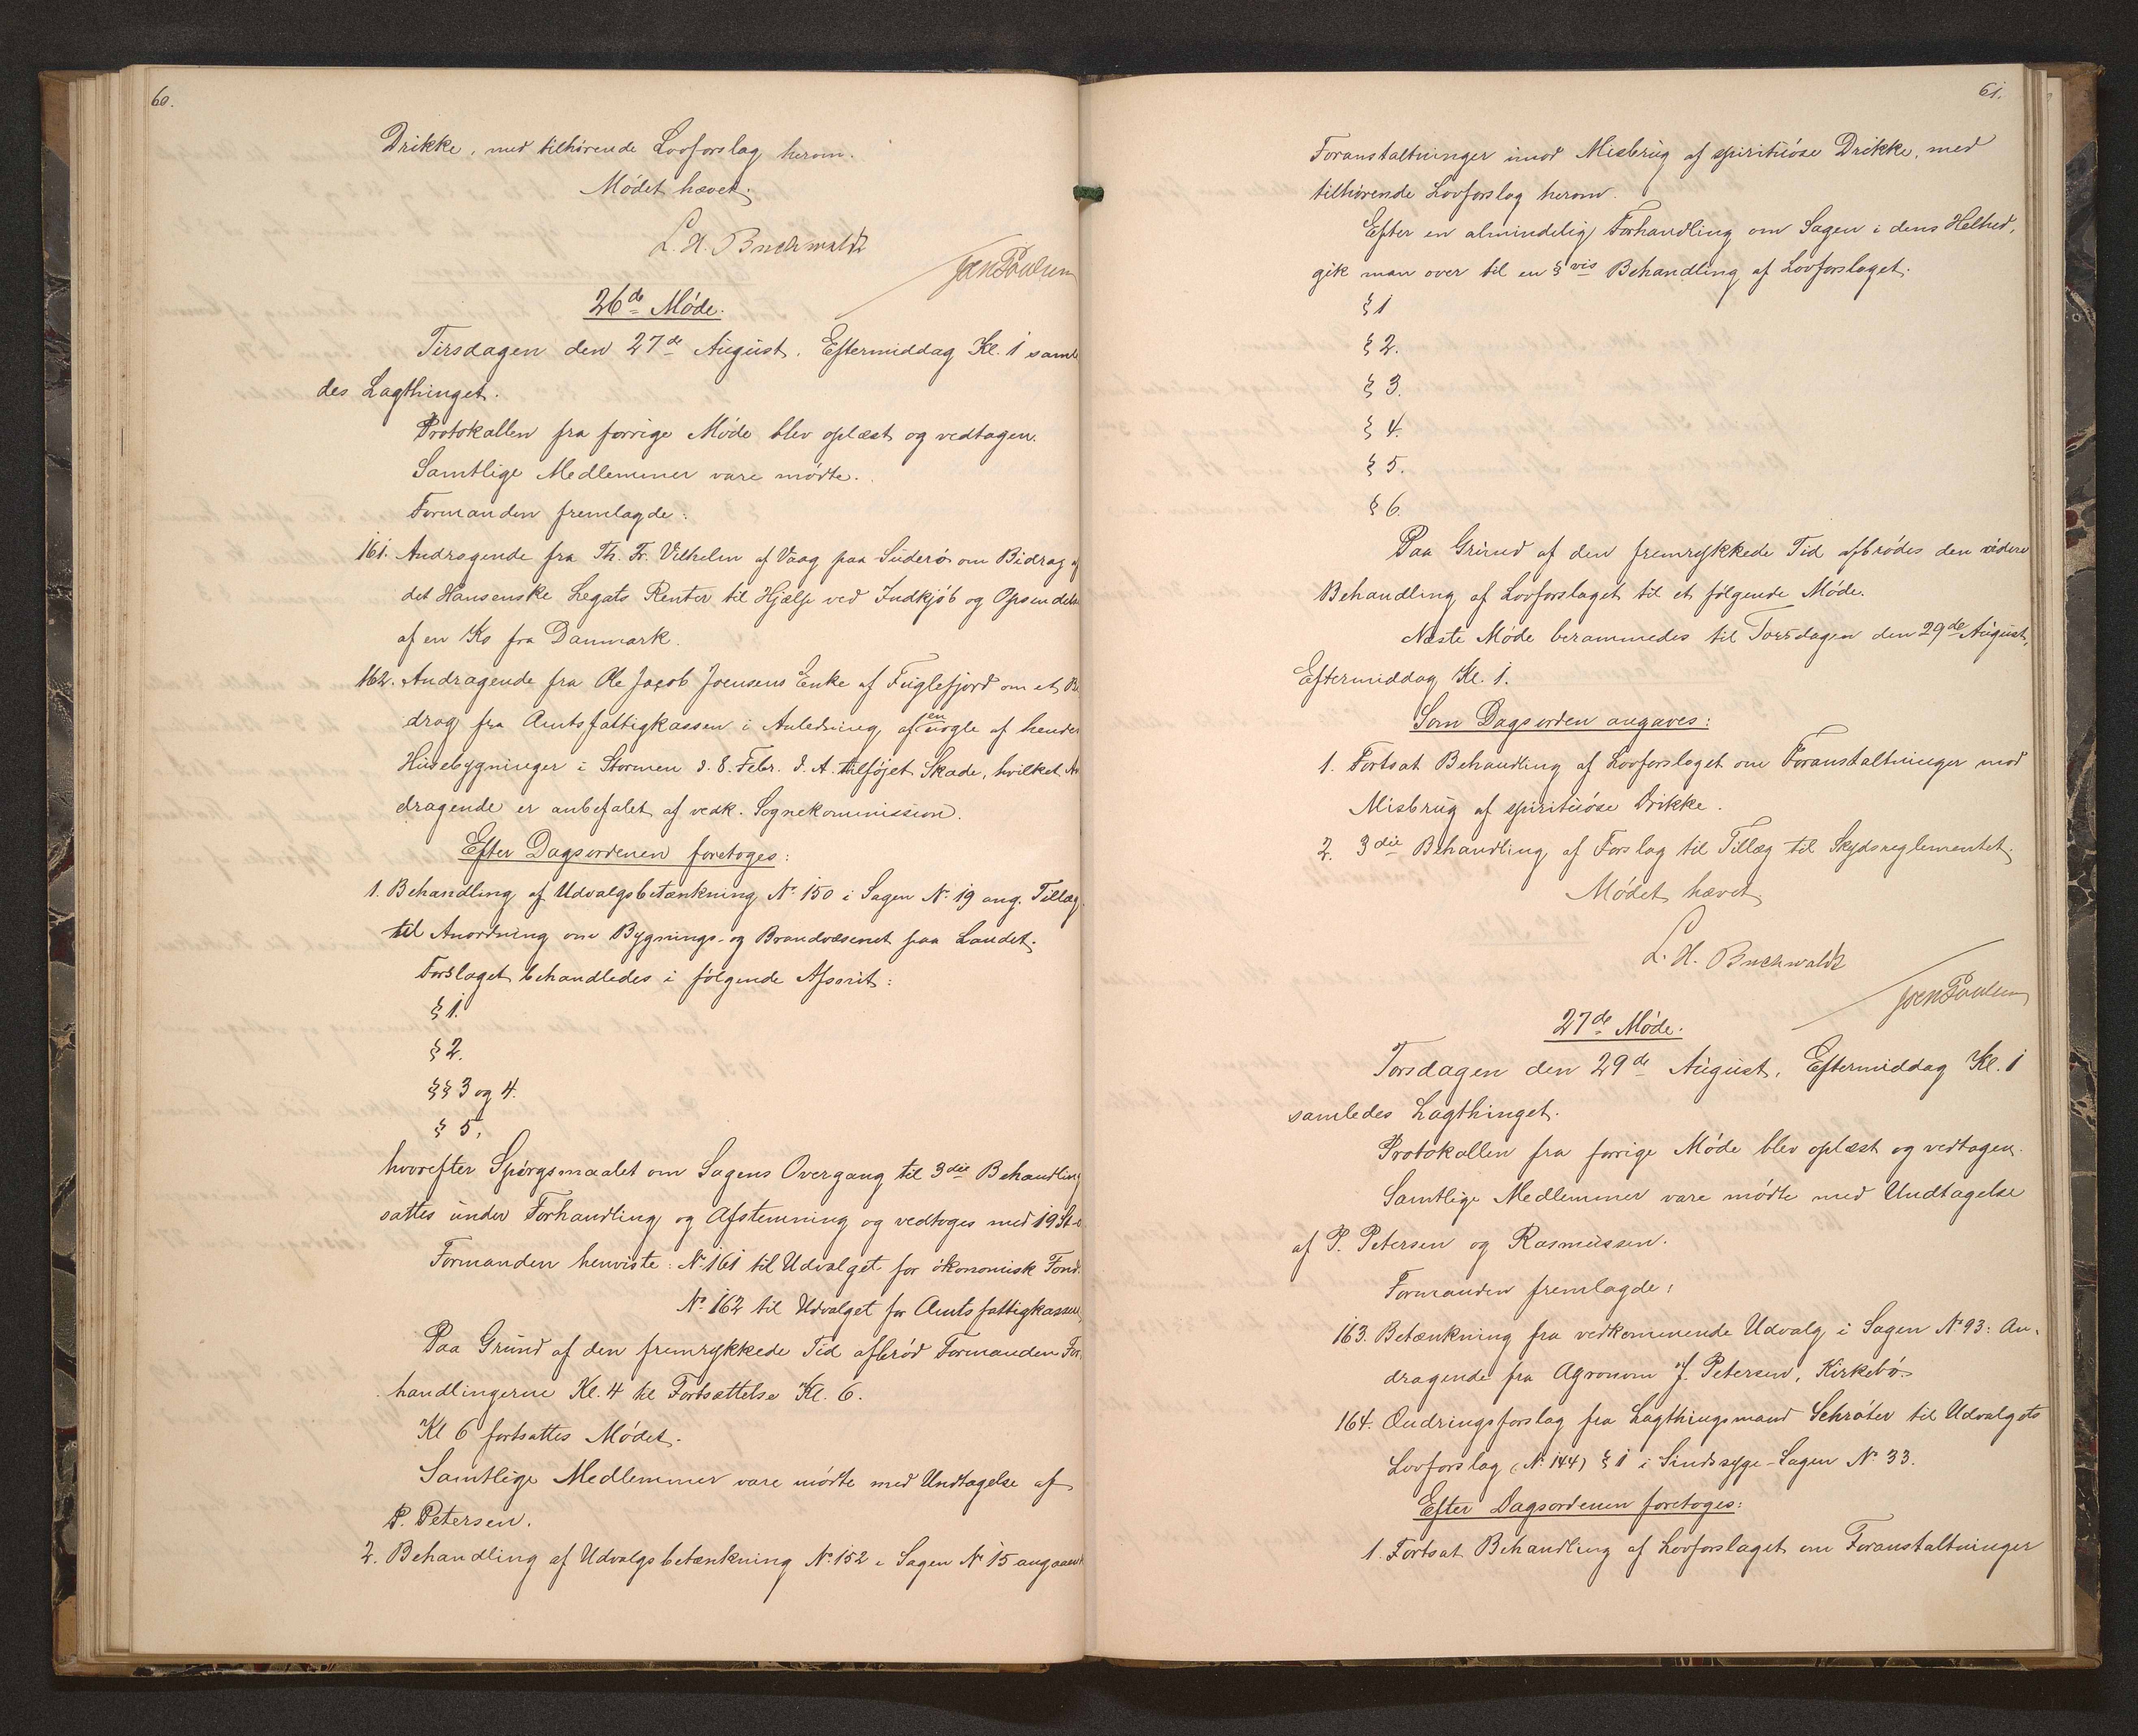 60.
Drikke, med tilhørende Lovforslag herom.
Mødet hævet.
L. H. Buchwaldt
Joen Poulsen
26de Møde.
Tirsdagen den 27de August, Eftermiddag Kl. 1 samle
des Lagthinget.
Protokollen fra forrige Møde blev oplæst og vedtagen.
Samtlige Medlemmer vare mødte.
Formanden fremlagde:
161. Andragende fra Th. Fr. Vilhelm af Vaag paa Suderø om Bidrag af
det Hansenske Legats Renter til Hjælp ved Indkjøb og Opsendelse
af en Ko fra Danmark.
162. Andragende fra Ole Jacob Joensens Enke af Fuglefjord om et Bi
drag fra Amtsfattigkassen i Anledning af en nogle af hendes
Husebygninger i Stormen d. 8. Febr. d. A. tilføjet Skade, hvilket An
dragende er anbefalet af vedk. Sognekommission.
Efter Dagsordenen foretoges:
1. Behandling af Udvalgsbetænkning No 150 i Sagen No 19 ang. Tillæg
til Anordning om Bygnings- og Brandvæsenet paa Landet.
Forslaget behandledes i følgende Afsnit:
§ 1.
§ 2.
§§ 3 og 4.
§ 5,
hvorefter Spørgsmaalet om Sagens Overgang til 3die Behandling
sattes under Forhandling og Afstemning og vedtoges med 19 St.
Formanden henviste: No 161 til Udvalget for økonomisk Fond.
No 162 til Udvalget for Amtsfattigkassen
Paa Grund af den fremrykkede Tid afbrød Formanden For
handlingerne Kl. 4 til Fortsættelse Kl. 6.
Kl 6 fortsattes Mødet.
Samtlige Medlemmer vare mødte med Undtagelse af
P. Petersen.
2. Behandling af Udvalgsbetænkning No 152 i Sagen No 15 angaaende
61.
Foranstaltninger imod Misbrug af spirituøse Drikke, med
tilhørende Lovforslag herom.
Efter en almindelig Forhandling om Sagen i dens Helhed,
gik man over til en §vis Behandling af Lovforslaget.
§ 1
§ 2.
§ 3.
§ 4.
§ 5.
§ 6.
Paa Grund af den fremrykkede Tid afbrødes den videre
Behandling af Lovforslaget til et følgende Møde.
Næste Møde berammedes til Torsdagen den 29de August,
Eftermiddag Kl. 1.
Som Dagsorden angaves:
1. Fortsat Behandling af Lovforslaget om Foranstaltninger mod
Misbrug af spirituøse Drikke.
2. 3die Behandling af Forslag til Tillæg til Skydsreglementet.
Mødet hævet
L. H. Buchwaldt
Joen Poulsen
27de Møde.
Torsdagen den 29de August, Eftermiddag Kl. 1
samledes Lagthinget.
Protokollen fra forrige Møde blev oplæst og vedtagen.
Samtlige Medlemmer vare mødte med Undtagelse
af P. Petersen og Rasmussen.
Formanden fremlagde:
163. Betænkning fra vedkommende Udvalg i Sagen No 93: An-
dragende fra Agronom J. Petersen, Kirkebø.
164. Ændringsforslag fra Lagthingsmand Schrøter til Udvalgets
Lovforslag (No 144) § 1 i Sindssyge-Sagen No 33.
Efter Dagsordenen foretoges:
1. Fortsat Behandling af Lovforslaget om Foranstaltninger